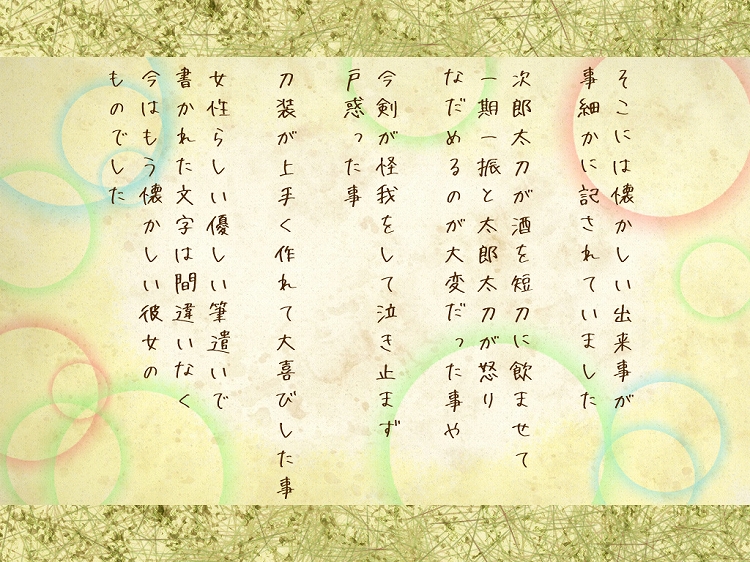 そこには懐かしい出来事が
事細かに記されていました
次郎太刀が酒を短刀に飲ませて
一期一振と太郎太刀が怒り
なだめるのが大変だった事や
今剣が怪我をして泣き止まず
戸惑った事
刀装が上手く作れて大喜びした事
女性らしい優しい筆遣いで
書かれた文字は間違いなく
今はもう懐かしい彼女の
ものでした